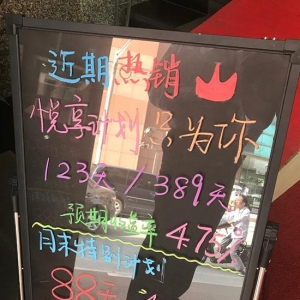 近期热销
悦享计划 只为你
123天/389天
预期收益率 4.75
月末特别计划
88天